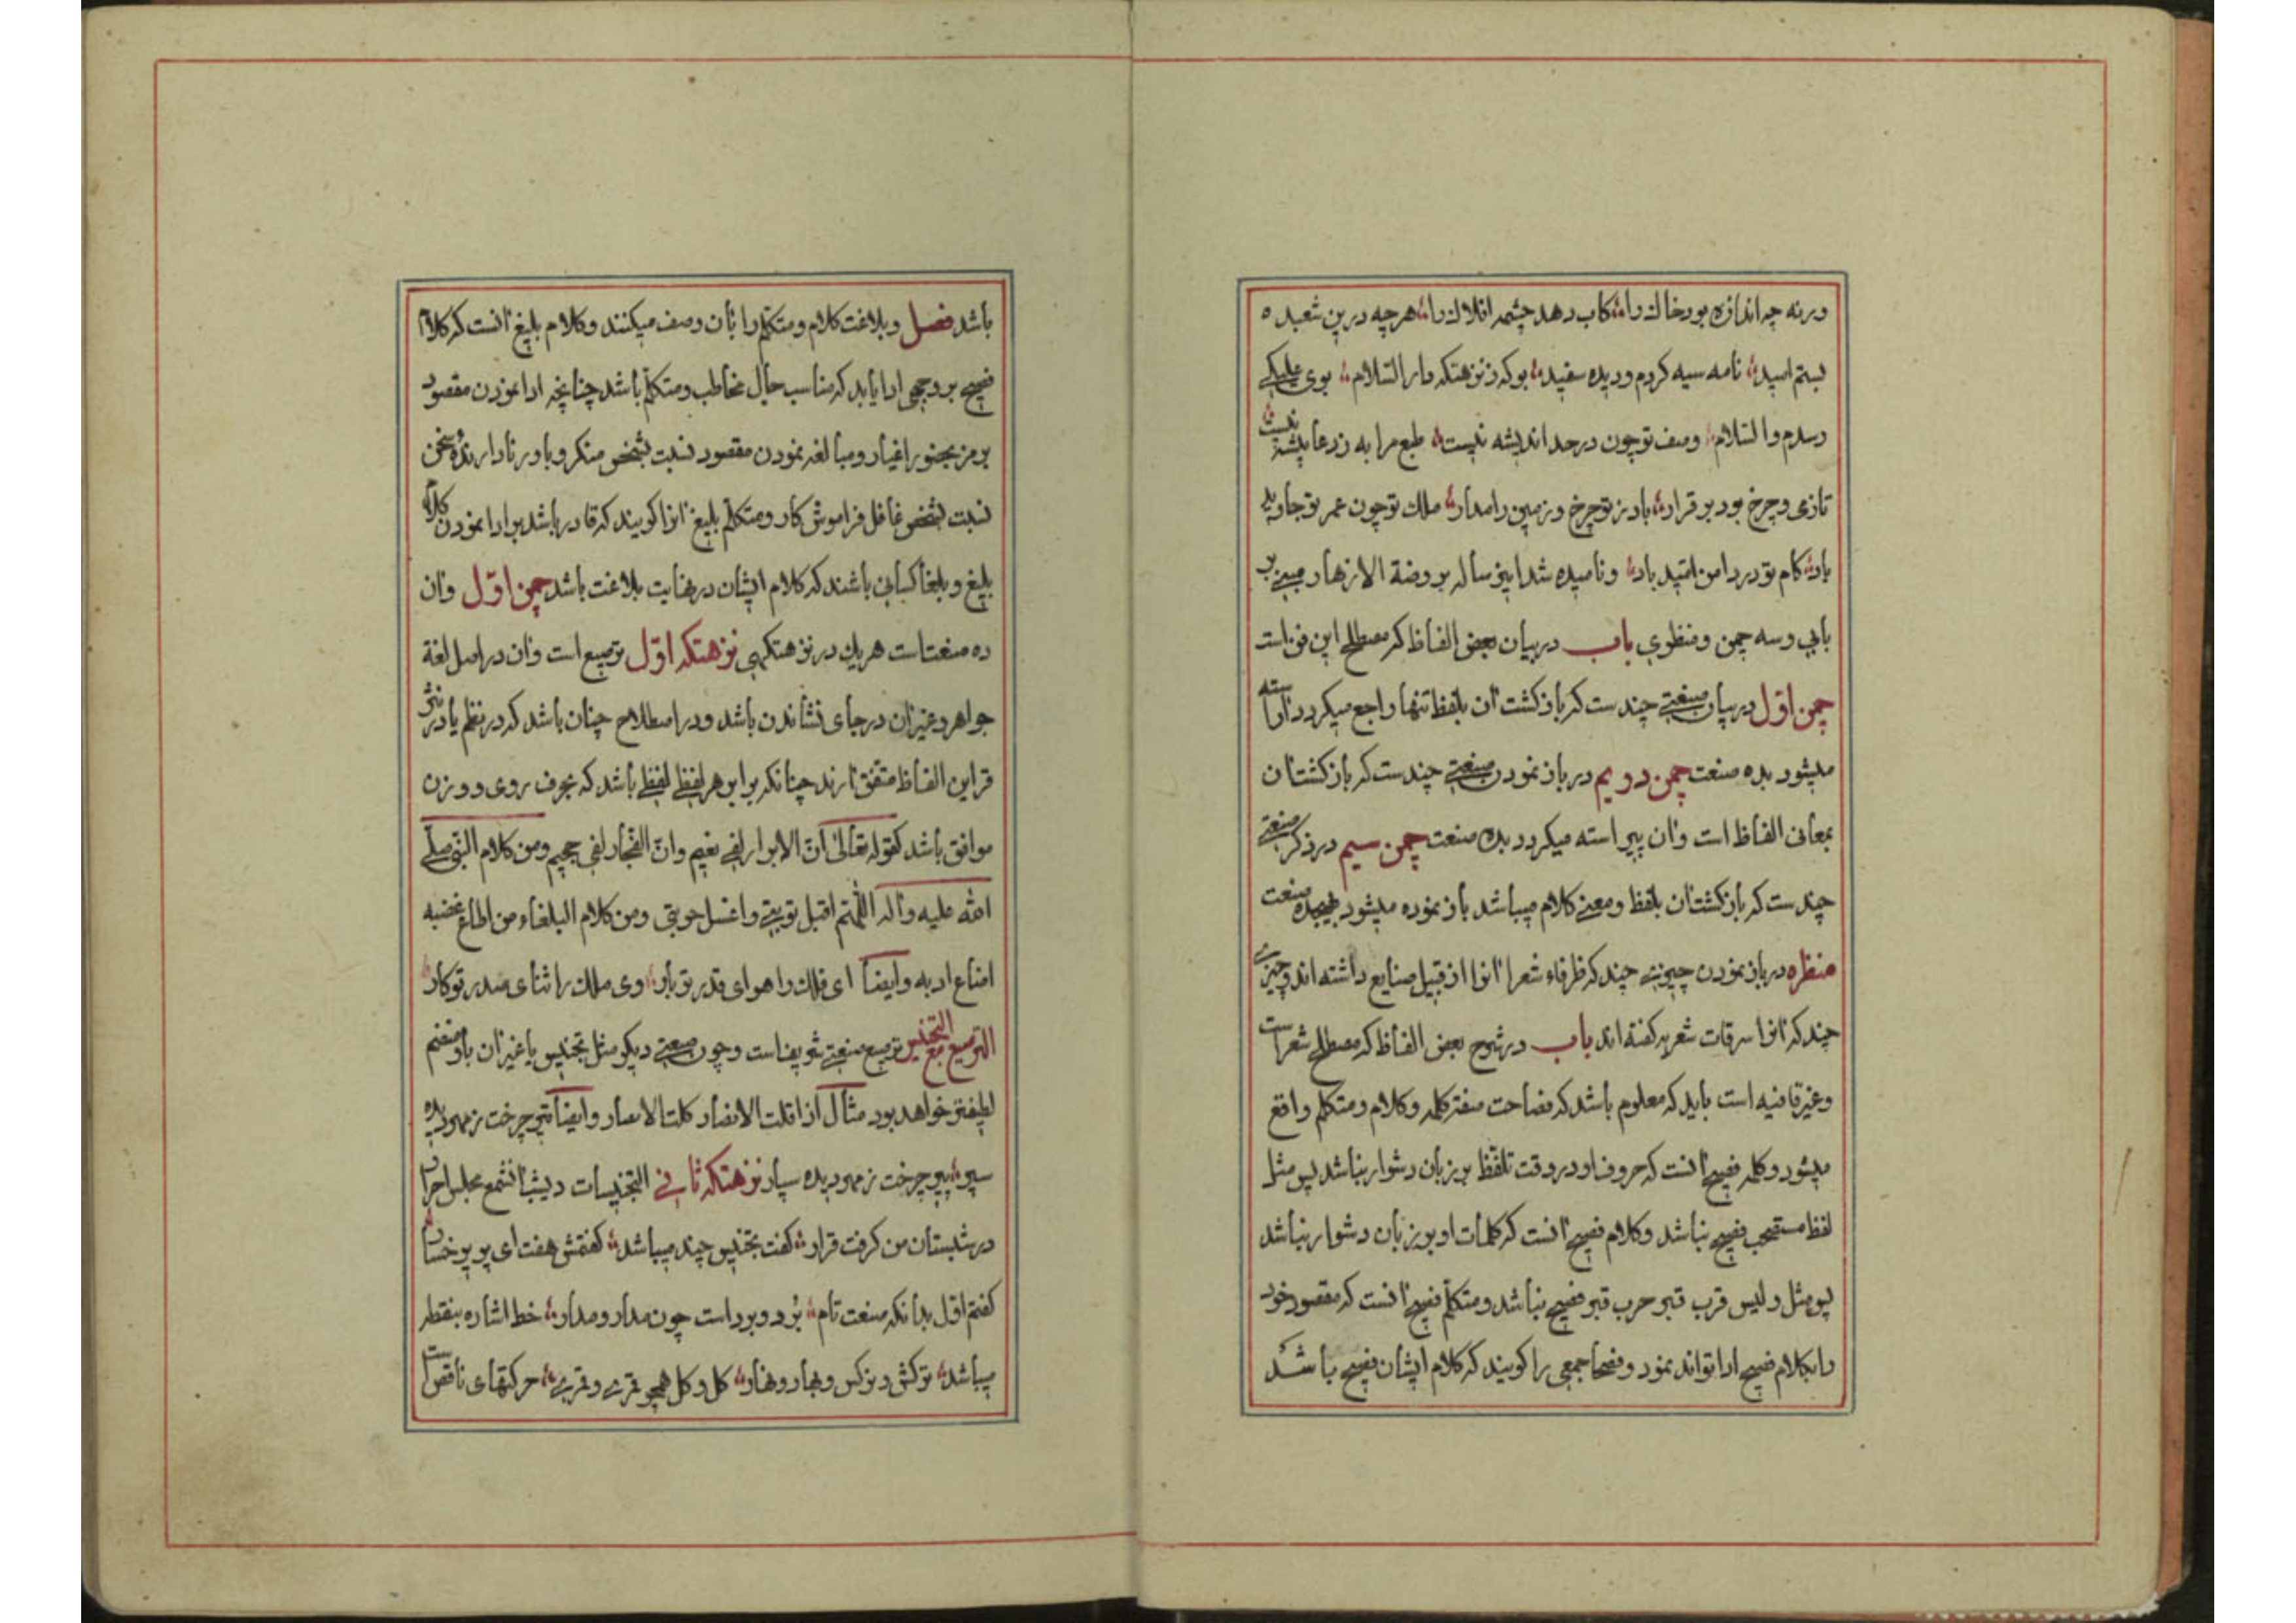 ورنه چه اندازه بود خاك را ؛ كاب دهد چشمه افلاك را ؛ هر چه درین شعبده ه
بستم امید ؛ نامه سیه كردم و دیده سفید ؛ بو كه ز نزهتكه دار السّلام ؛ بوی علیكی
رسدم والسّلام ؛ وصف تو چون در حد اندیشه نیست ؛ طبع مرا به ز دعا پیشه نیست
تا زی و چرخ بود بر قرار ؛ باد ز تو چرخ و زمین را مدار ؛ ملك تو چون عمر تو جاوید
باد ؛ كام تو در دامن امّید باد ؛ و نامیده شد این رساله بروضة الازهار مبنی بر
بابی و سه چمن و منظری باب در بیان بعض الفاظ كه مصطلح این فن است
چمن اوّل در بیان صنعتی چند ست كه باز كشت آن بلفظ تنها راجع میكردد آراسته
میشود بده صنعت چمن دویم در باز نمودن صنعتی چند ست كه باز كشت آن
بمعانی الفاظ است و آن پیراسته میكردد بده صنعت چمن سیم در ذكر صنعتی
چند ست كه باز كشت آن بلفظ و معنی كلام میباشد باز نموده میشود صنعت
منظره در باز نمودن چیزی چند كه ظرفاء شعرا آنرا از قبیل صنایع داشته اند و چیزی
چند كه آنرا سرقات شعریه كفته اند باب در شرح بعض الفاظ كه مصطلح شعراست
و غیر قافیه است باید كه معلوم باشد كه فصاحت صفة كلمه و كلام و متكلم واقع
میشود و كلمه فصیح آنست كه حروف او در وقت تلفّظ بر زبان دشوار نباشد پس مثل
لفظ مستهجب فصیح نباشد و كلام فصیح آنست كه كلمات او بر زبان دشوار نباشد
پس مثل و لیس قرب قبر حرب قبر فصیح نباشد و متكلّم فصیح آنست كه مقصود خود
را بكلام فصیح ادا تواند نمود و فصحا جمعی را كویند كه كلام ایشان فصیح باشد
باشد فصل و بلاغت كلام و متكلّم را بآن وصف میكنند و كلام بلیغ آنست كه كلام
فصیح بر وجهی ادا یابد كه مناسب حال مخاطب و متكلّم باشد چنانچه ادا نمودن مقصود
برمز بحضور اغیار و مبالغه نمودن مقصود نسبت بشخص منكر و باور نادارنده سخن
نسبت بشخص غافل فراموش كار و متكلّم بلیغ آنرا كویند كه قادر باشد بر ادا نمودن كلام
بلیغ و بلغا كسانی باشند كه كلام ایشان در نهایت بلاغت باشد چمن اوّل و آن
ده صنعتست هر یك در نزهتكهی نزهتكه اوّل ترصیع است و آن در اصل لغة
جواهر و غیر آن در جای نشاندن باشد و در اصطلاح چنان باشد كه در نظم یا در نثر
قراین الفاظ متفق آرند چنانكه برابر هر لفظی لفظی باشد كه بحرف روی و وزن
موافق باشد كقوله تعالی انّ الابرار لفی نعیم وانّ الفجّار لفی جحیم ومن كلام النّبی صلّی
الله علیه وآله اللّهمّ اقبل توبتی واغسل حوبتی ومن كلام البلغاء من اطاع غضبه
اضاع ادبه وایضاً ای فلك را هوای قدر تو بار ؛ وی ملك را ثنای صدر تو كار ؛
الترصیع مع التجنیس ترصیع صنعتی شریف است و چون صنعتی دیكر مثل تجنیس یا غیر آن باو منضم
لطیفتر خواهد بود مثال اذا قلت الانصار كلت الابصار وایضاً تیر چرخت ز مهر دیده
سپر ؛ پیر چرخت ز مهر دیده سپار نزهتكه ثانی التجنیسات دیشب آنشمع مجلس احرار
در شبستان من كرفت قرار ؛ كفت تجنیس چند میباشد ؛ كفتمش هفت ای پری رخسار
كفتم اوّل بدانكه صنعت تام ؛ بُرد و برد است چون مدار و مدار ؛ خط اشاره بنقطه
میباشد ؛ تركش و نركس و بهار و نهار ؛ كل و كل همچو قمری و قمری ؛ حركتهای ناقص است